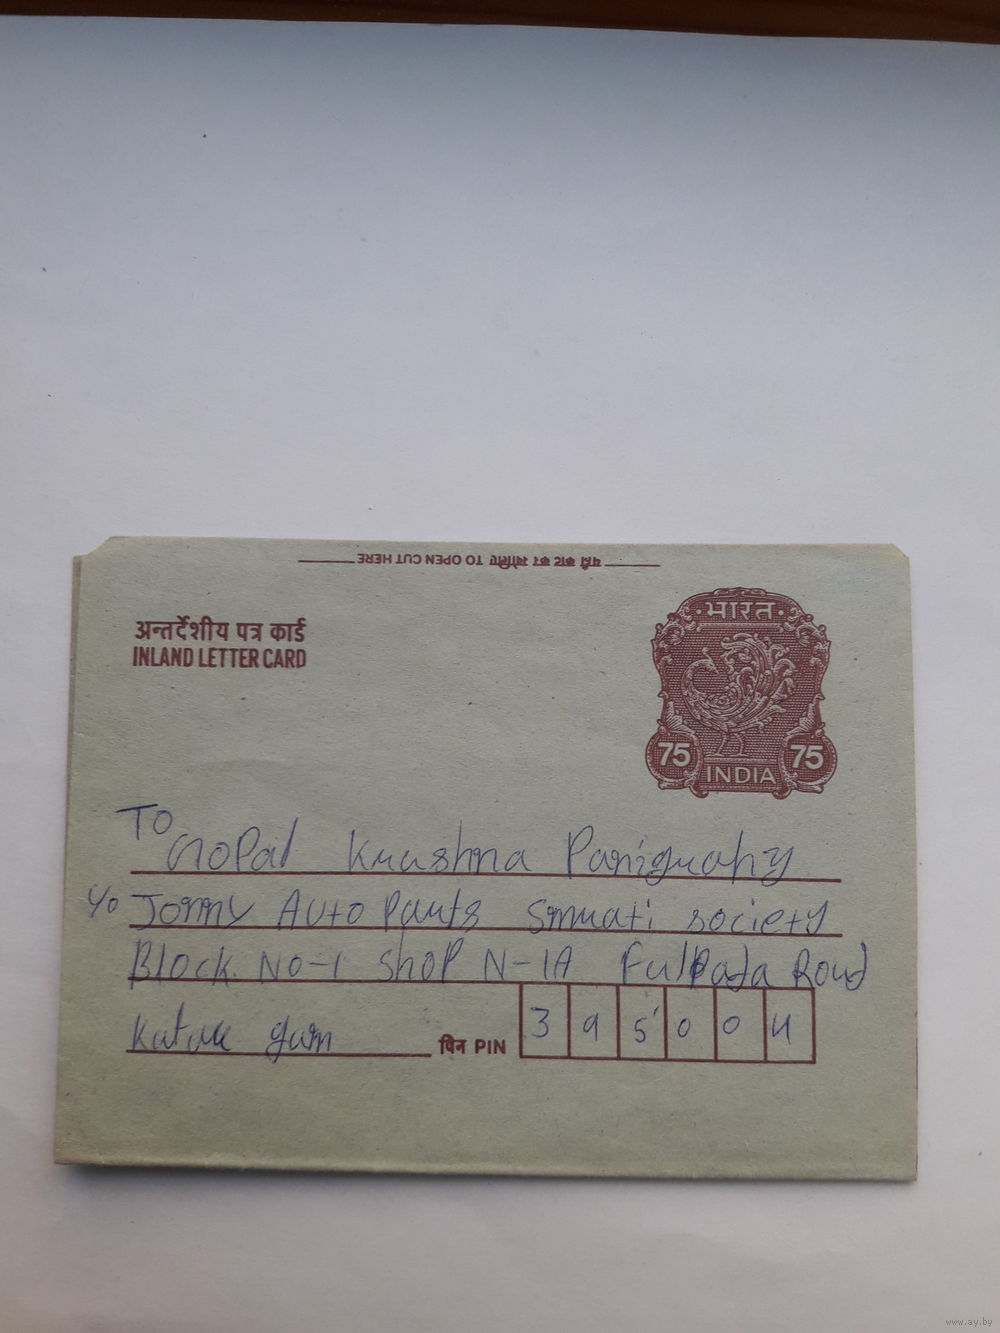 यहाँ काट कर खोलिए TO OPEN CUT HERE
अन्तर्देशीय पत्र कार्ड
INLAND LETTER CARD
भारत
75 75
INDIA
To
Gopal Krushna Panigrahy
c/o Jommy Auto Parts Smruti society
Block No-1 Shop N-1A Fulpada Road
Katar gam
पिन PIN 395004
www.ay.by